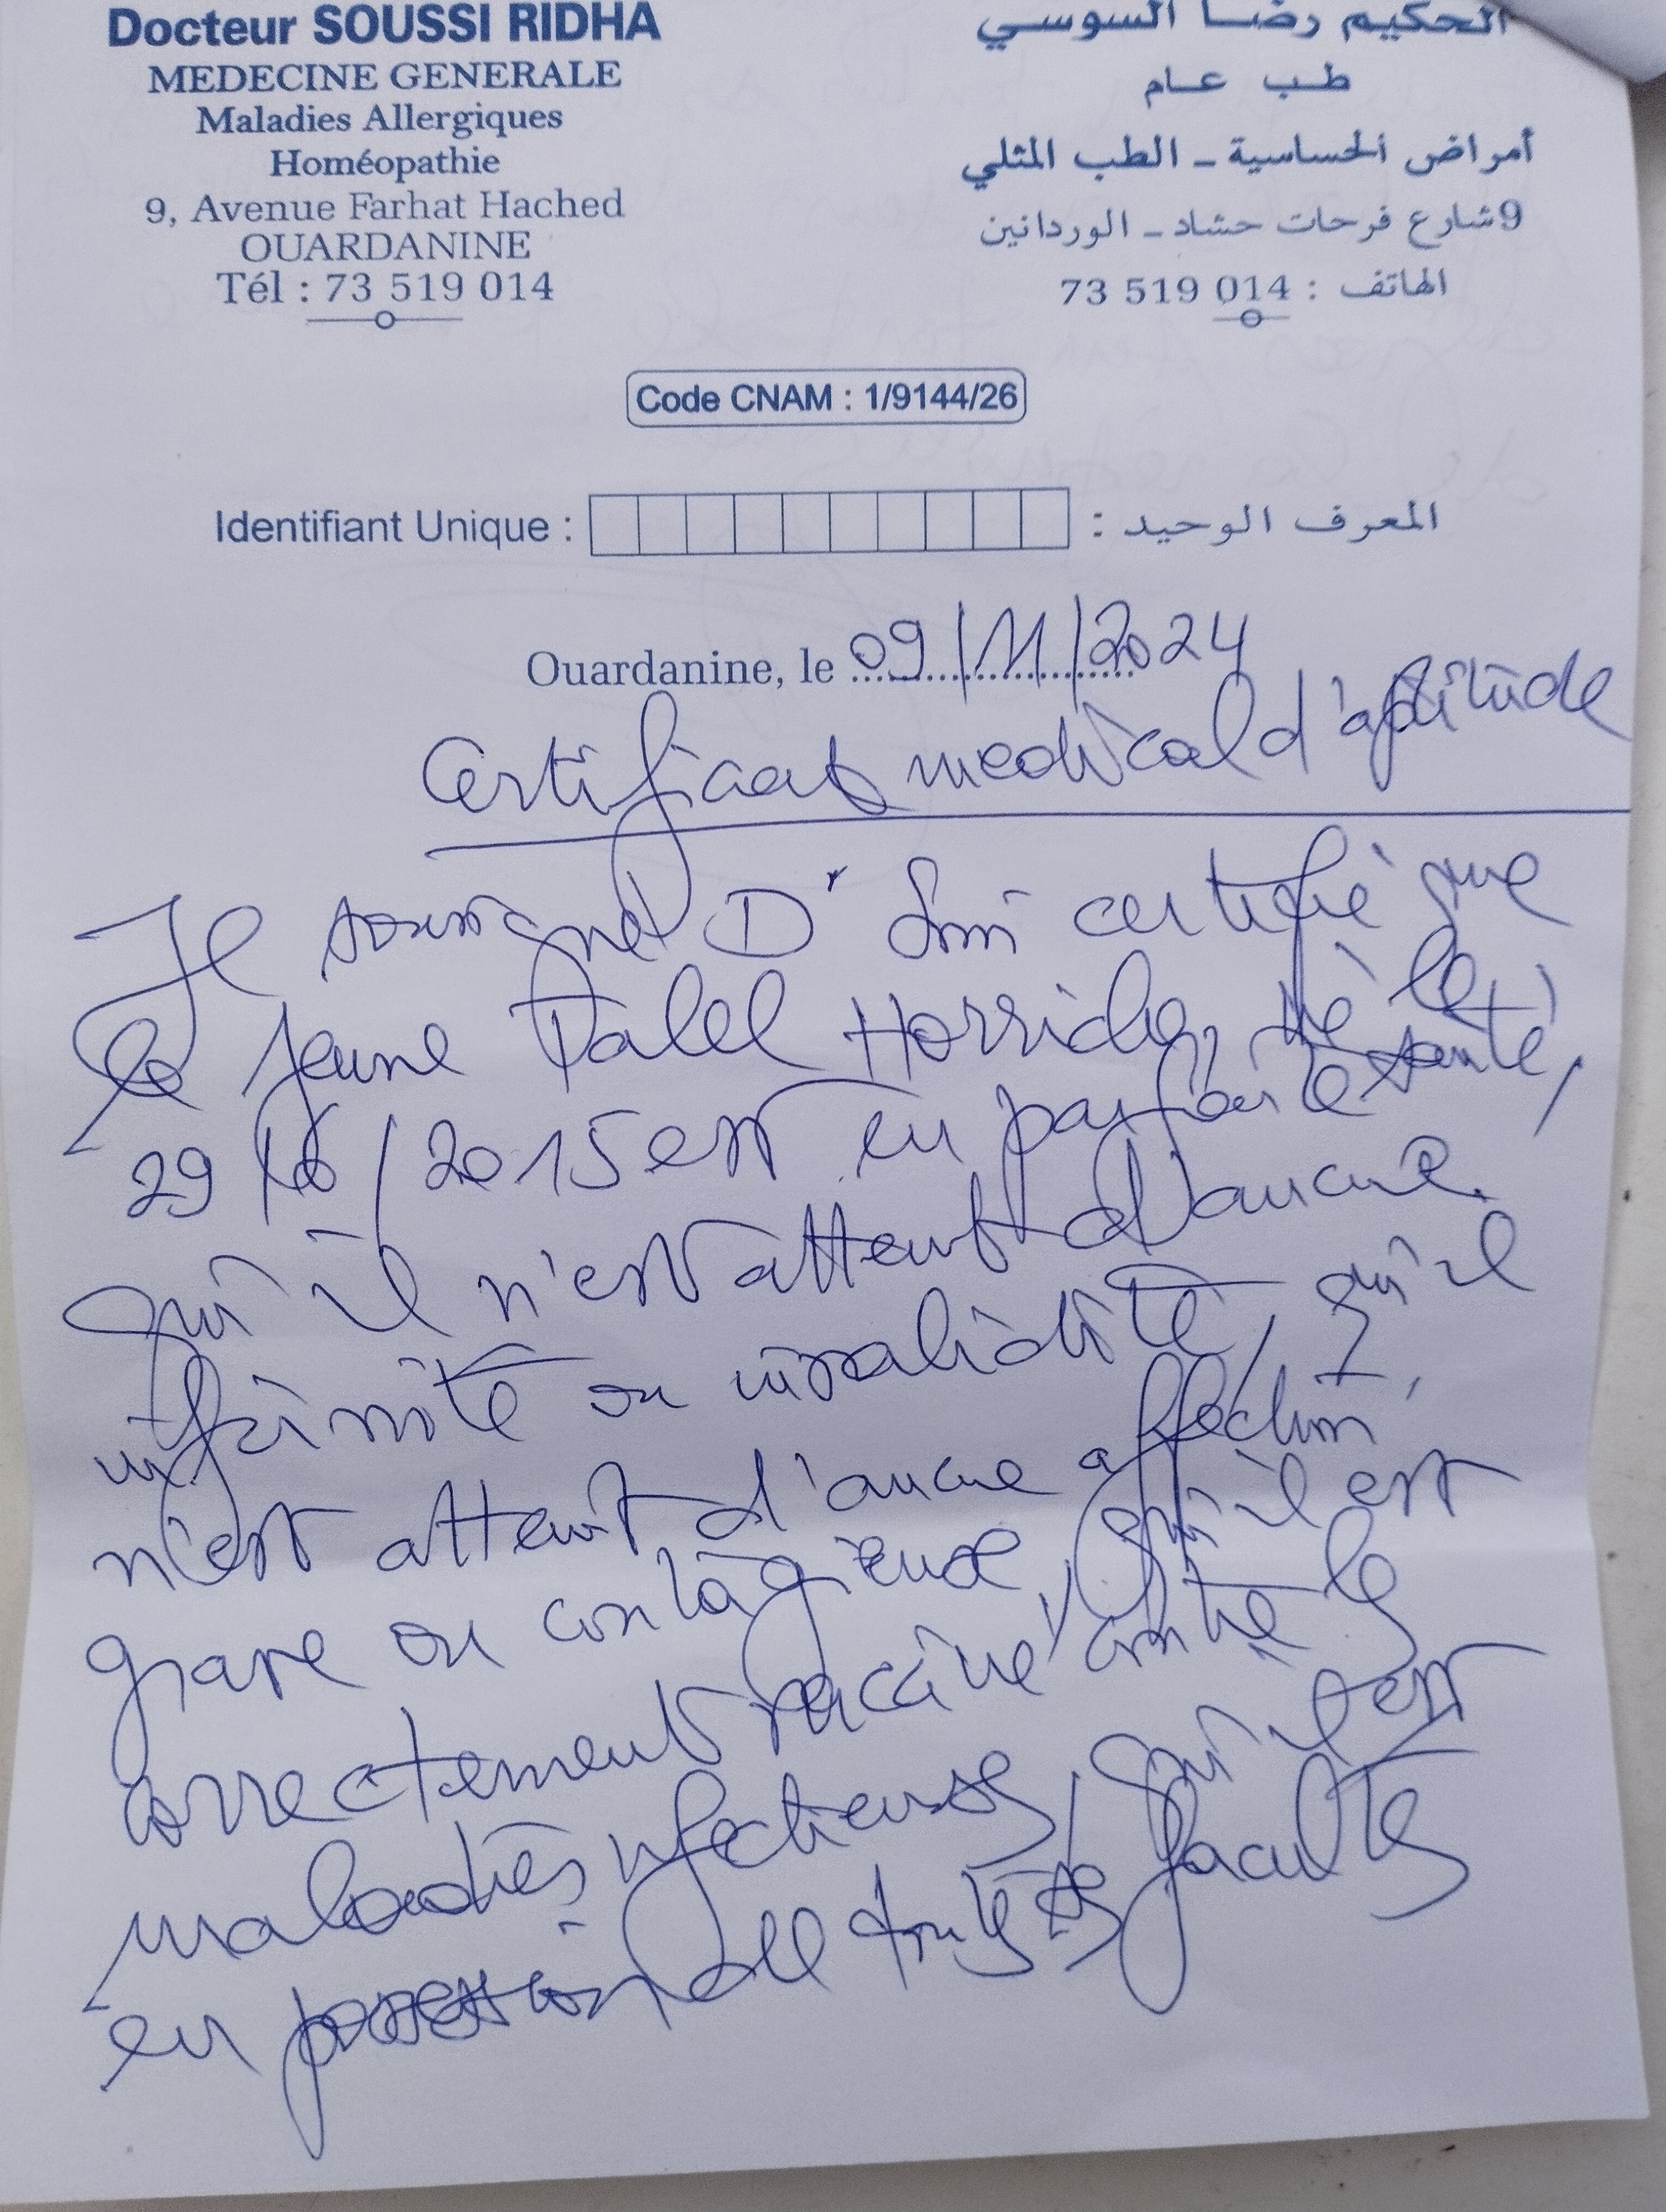 Docteur SOUSSI RIDHA
MEDECINE GENERALE
Maladies Allergiques
Homéopathie
9, Avenue Farhat Hached
OUARDANINE
Tél : 73 519 014
الحكيم رضا السوسي
طب عام
أمراض الحساسية - الطب المثلي
9 شارع فرحات حشاد - الوردانين
الهاتف : 014 519 73
Code CNAM : 1/9144/26
Identifiant Unique : المعرف الوحيد :
Ouardanine, le 09/11/2024
Certificat medical d'aptitude
Je soussigné Dr certifie que
le jeune Talel Horriche, né le
29 / /2015 est en parfaite santé,
qu'il n'est atteint d'aucune
infirmité ou invalidité, qu'il
n'est atteint d'aucune affection
grave ou contagieuse, qu'il est
correctement vacciné contre les
maladies infectieuses, qu'il est
en possession de toutes ses facultés